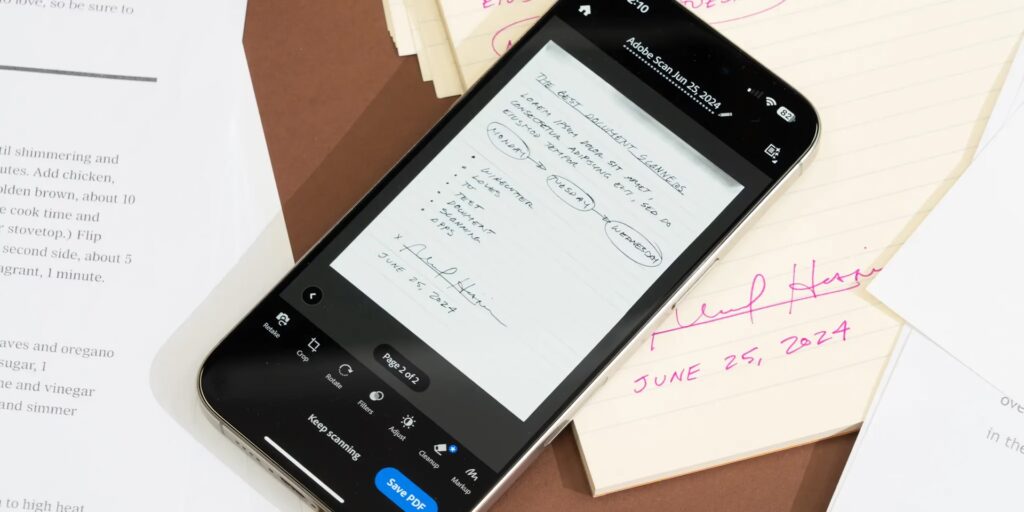 love, so be sure to
til shimmering and
utes. Add chicken,
olden brown, about 10
e cook time and
stovetop.) Flip
second side, about 5
agrant, 1 minute.
aves and oregano
sugar, 1
ne and vinegar
and simmer
to high heat
2:10
82
Adobe Scan Jun 25, 2024
THE BEST DOCUMENT SCANNERS
LOREM IPSUM DOLOR SIT AMET,
CONSECTETUR ADIPISCING ELIT, SED DO
EIUSMOD TEMPOR
MONDAY → TUESDAY → WEDNESDAY
• WIRECUTTER
• LOVES
• TO
• TEST
• DOCUMENT
• SCANNING
• APPS
X
JUNE 25, 2024
Page 2 of 2
Retake
Crop
Rotate
Filters
Adjust
Cleanup
Markup
Keep scanning
Save PDF
TUESDAY
JUNE 25, 2024
ove
in the